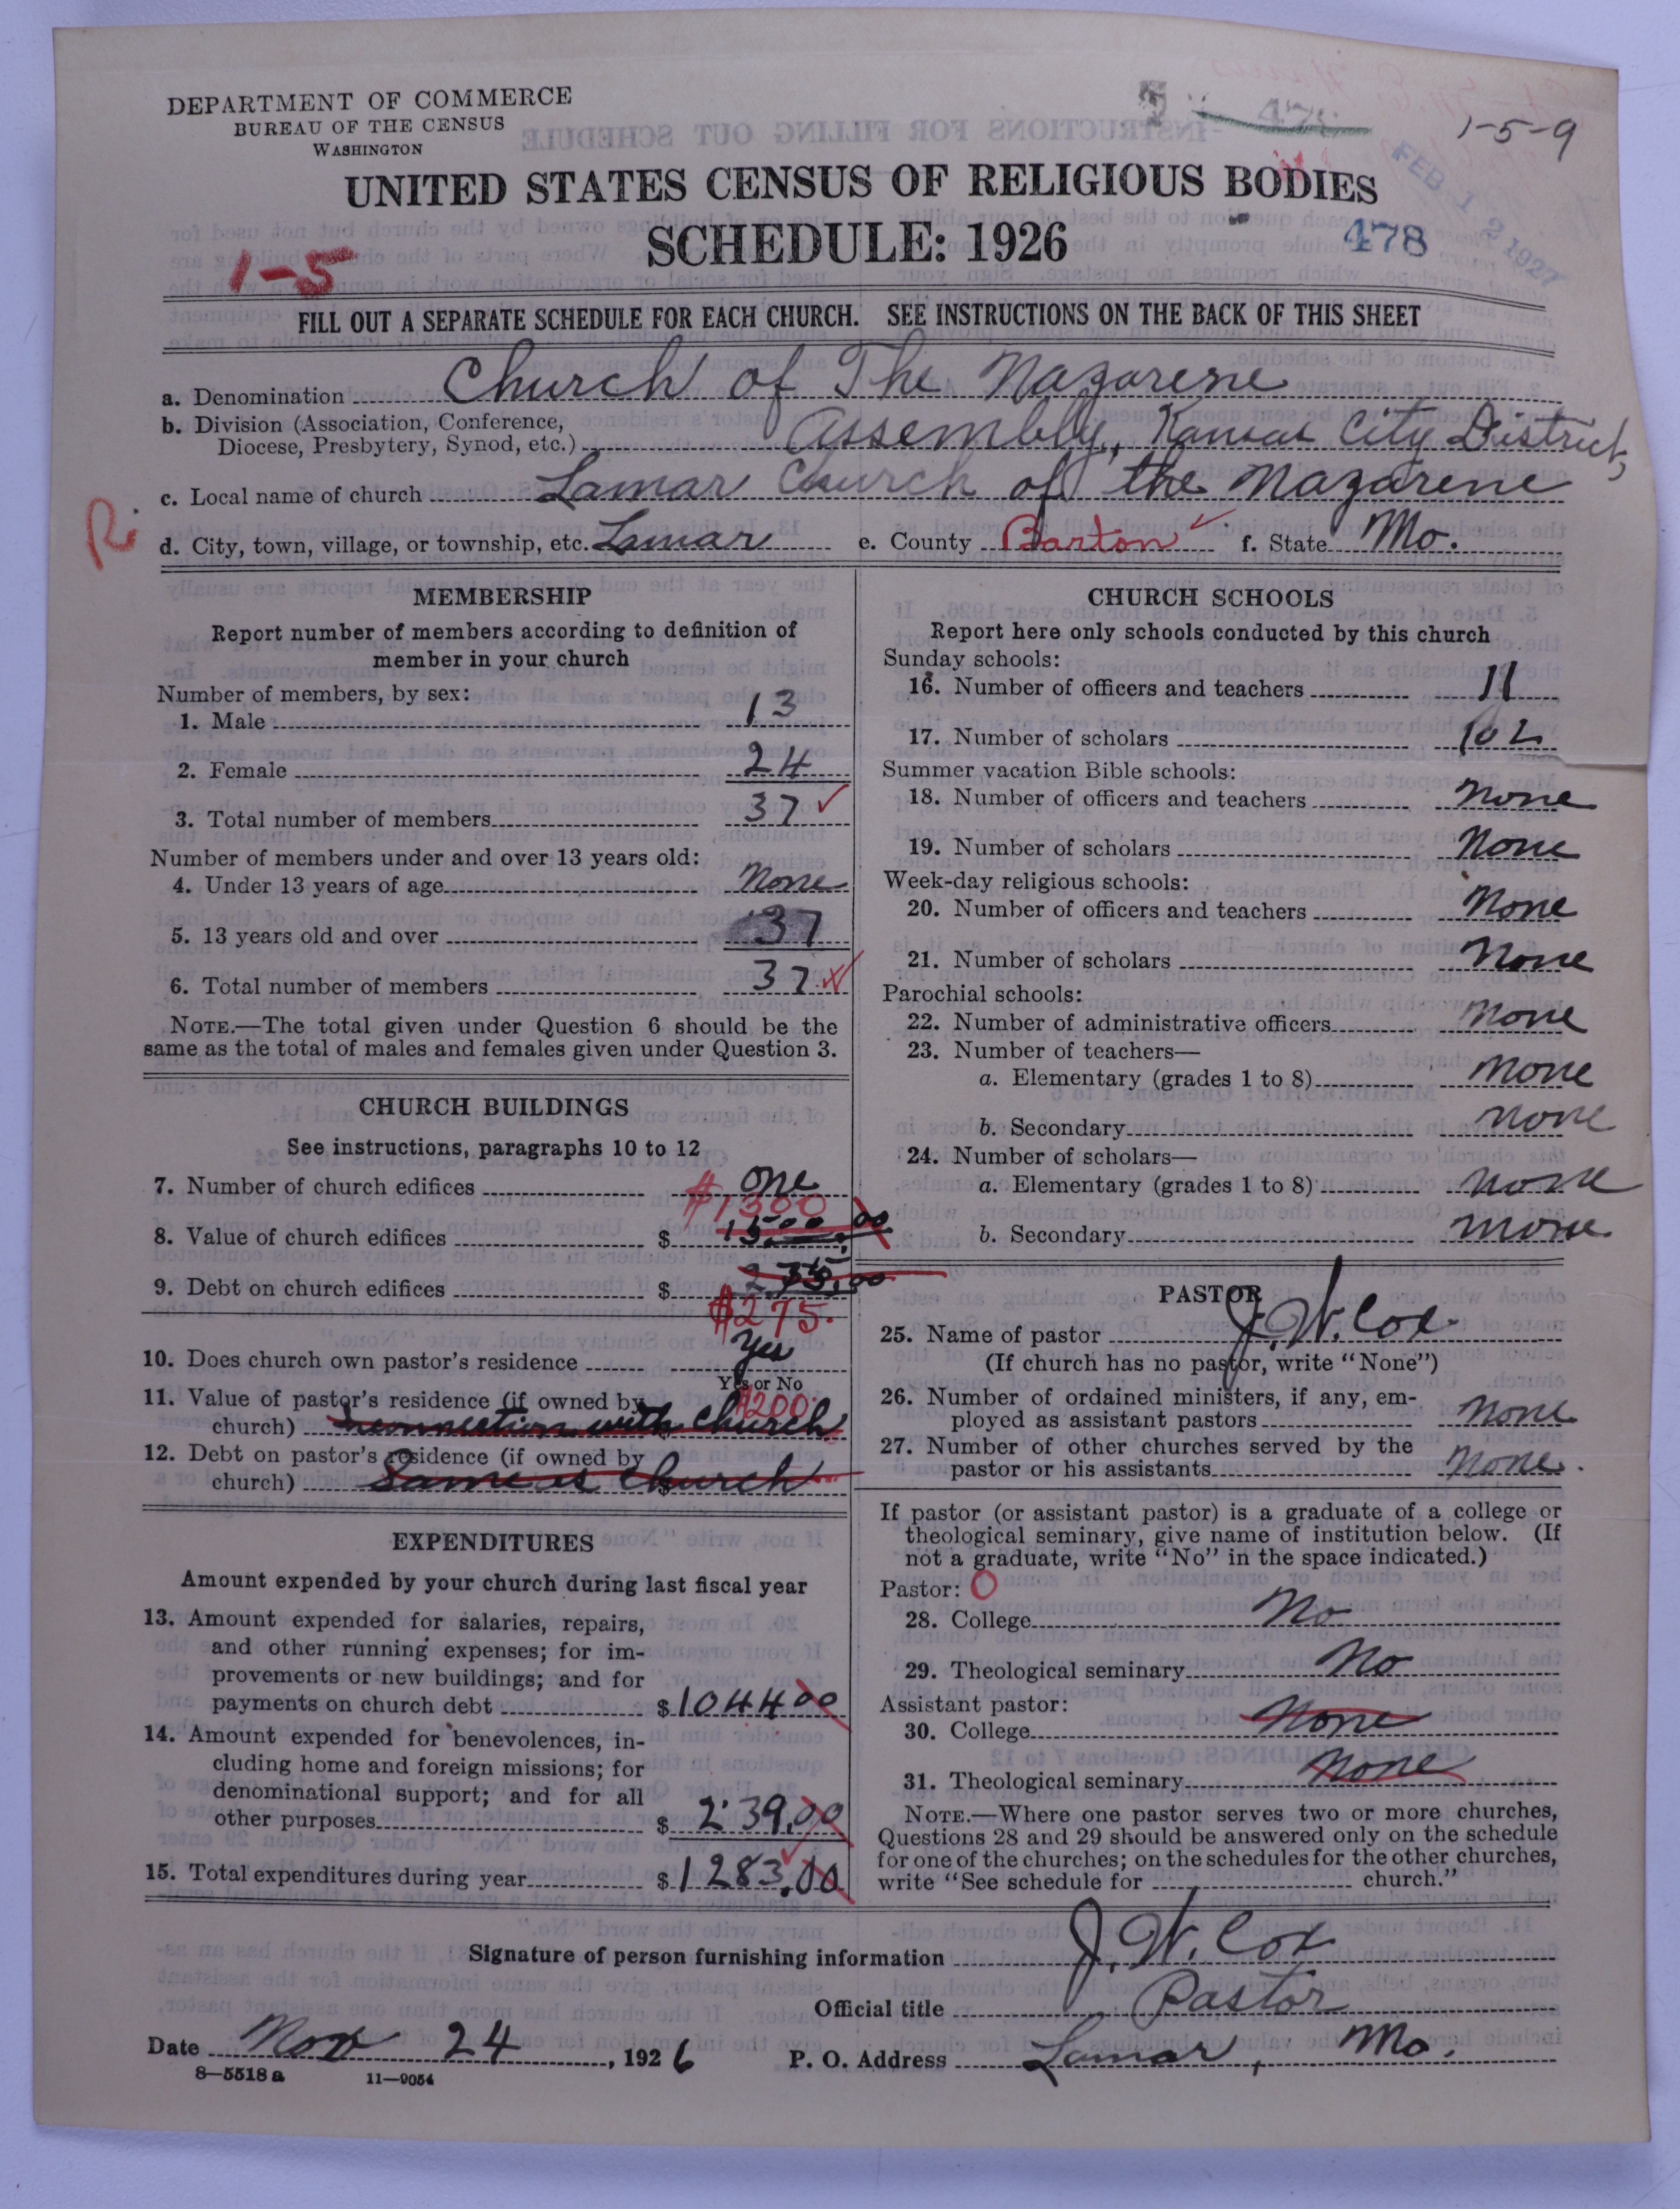 DEPARTMENT OF COMMERCE
BUREAU OF THE CENSUS
WASHINGTON
1-5-9
FEB 12 1927
UNITED STATES CENSUS OF RELIGIOUS BODIES
SCHEDULE: 1926
478
1-5
FILL OUT A SEPARATE SCHEDULE FOR EACH CHURCH. SEE INSTRUCTIONS ON THE BACK OF THIS SHEET
a. Denomination Church of The Nazarene
b. Division (Association, Conference,
Diocese, Presbytery, Synod, etc.) Assembly, Kansas City District,
c. Local name of church Lamar Church of the Nazarene
R.
d. City, town, village, or township, etc. Lamar e. County Barton f. State Mo.
MEMBERSHIP
Report number of members according to definition of
member in your church
Number of members, by sex:
1. Male 13
2. Female 24
3. Total number of members 37
Number of members under and over 13 years old:
4. Under 13 years of age None
5. 13 years old and over 37
6. Total number of members 37
NOTE.—The total given under Question 6 should be the
same as the total of males and females given under Question 3.
CHURCH BUILDINGS
See instructions, paragraphs 10 to 12
7. Number of church edifices one
$1300
8. Value of church edifices $ 1500.00
9. Debt on church edifices $
$275.
10. Does church own pastor's residence yes
Yes or No
11. Value of pastor's residence (if owned by
$200
church) connection with church
12. Debt on pastor's residence (if owned by
church) Same as Church $
EXPENDITURES
Amount expended by your church during last fiscal year
13. Amount expended for salaries, repairs,
and other running expenses; for im-
provements or new buildings; and for
payments on church debt $ 1044 00
14. Amount expended for benevolences, in-
cluding home and foreign missions; for
denominational support; and for all
other purposes $ 239.00
15. Total expenditures during year $ 1283.00
CHURCH SCHOOLS
Report here only schools conducted by this church
Sunday schools:
16. Number of officers and teachers 11
17. Number of scholars 102
Summer vacation Bible schools:
18. Number of officers and teachers None
19. Number of scholars None
Week-day religious schools:
20. Number of officers and teachers None
21. Number of scholars None
Parochial schools:
22. Number of administrative officers None
23. Number of teachers—
a. Elementary (grades 1 to 8) None
b. Secondary None
24. Number of scholars—
a. Elementary (grades 1 to 8) None
b. Secondary None
PASTOR
25. Name of pastor J. W. Cox
(If church has no pastor, write "None")
26. Number of ordained ministers, if any, em-
ployed as assistant pastors None
27. Number of other churches served by the
pastor or his assistants None.
If pastor (or assistant pastor) is a graduate of a college or
theological seminary, give name of institution below. (If
not a graduate, write "No" in the space indicated.)
Pastor: O
28. College No
29. Theological seminary No
Assistant pastor:
30. College None
31. Theological seminary None
NOTE.—Where one pastor serves two or more churches,
Questions 28 and 29 should be answered only on the schedule
for one of the churches; on the schedules for the other churches,
write "See schedule for church."
Signature of person furnishing information J. W. Cox
Official title Pastor
Date Nov 24, 1926 P. O. Address Lamar, Mo.
8—5518 a 11—9054